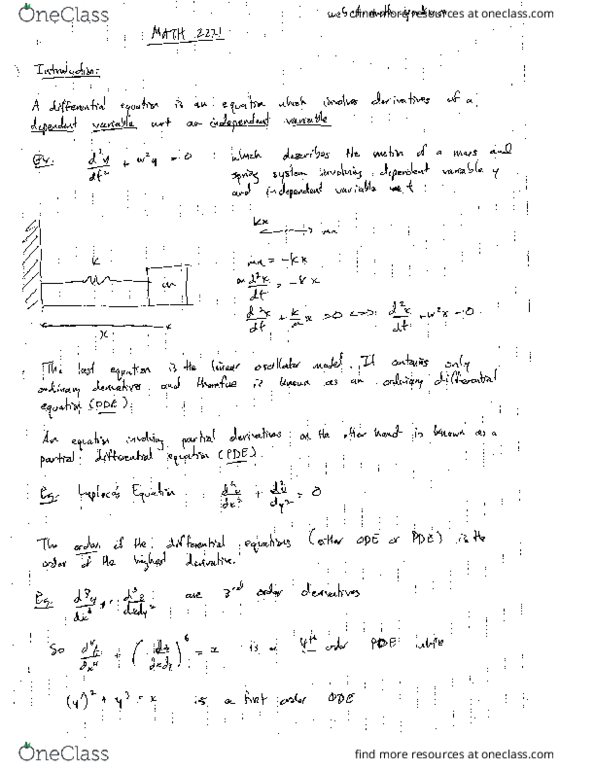 OneClass
find more resources at oneclass.com
MATH 2221
Introduction:
A differential equation is an equation which involves derivatives of a
dependent variable wrt an independent variable
Ex. d²y/dt² + w²y = 0 : which describes the motion of a mass and
spring system involving dependent variable y
and independent variable t :
kx
ma
k
m
x
ma = -kx
m d²x/dt = -kx
d²x/dt + k/m x = 0 <=> d²x/dt + w²x = 0
The last equation is the linear oscillator model. It contains only
ordinary derivatives and therefore is known as an ordinary differential
equation (ODE).
An equation involving partial derivatives on the other hand is known as a
partial differential equation (PDE).
Eg. Laplace's Equation d²u/dx² + d²u/dy² = 0
The order of the differential equations (either ODE or PDE) is the
order of the highest derivative.
Eg. d³y/dx³, d³z/dxdy² are 3rd order derivatives
So + ( )⁶ = x is a 4th order PDE while
(y')² + y³ = x is a first order ODE
OneClass
find more resources at oneclass.com